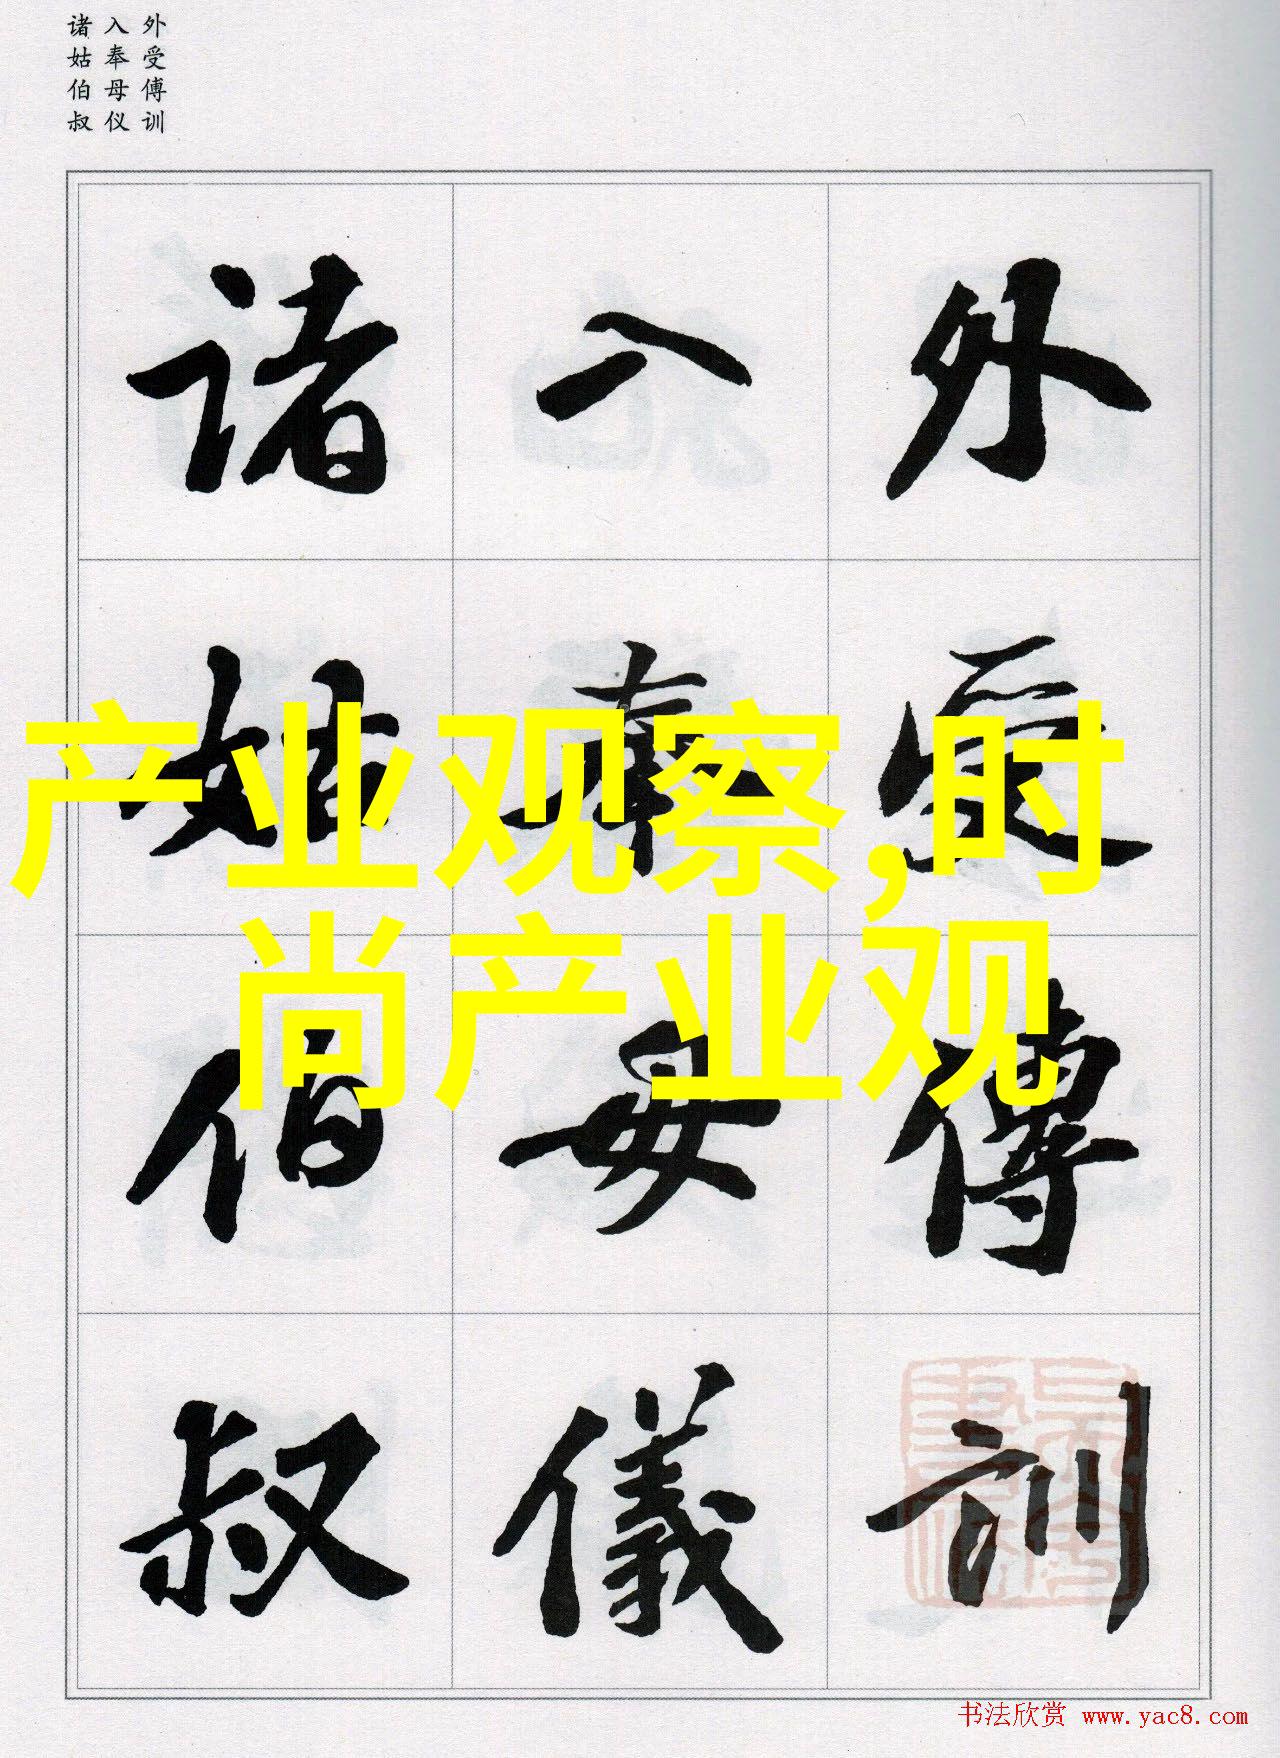 外受傅训
入奉母仪
诸姑伯叔
外受傅訓
入奉母儀
诸姑伯叔
产业观察,时
尚产业观
书法欣赏 www.yac8.com